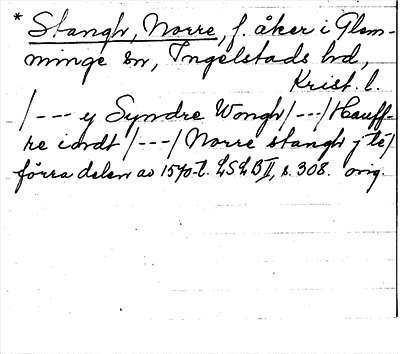 * Stangh, Norre, f. åker i Glem-
minge sn, Ingelstads hd,
Krist. l.
/--- y Syndre Wongh/---/Hauff-
re iordt/---/Norre stangh j té/
förra delen av 1570-t. LSLB II, s. 308. orig.